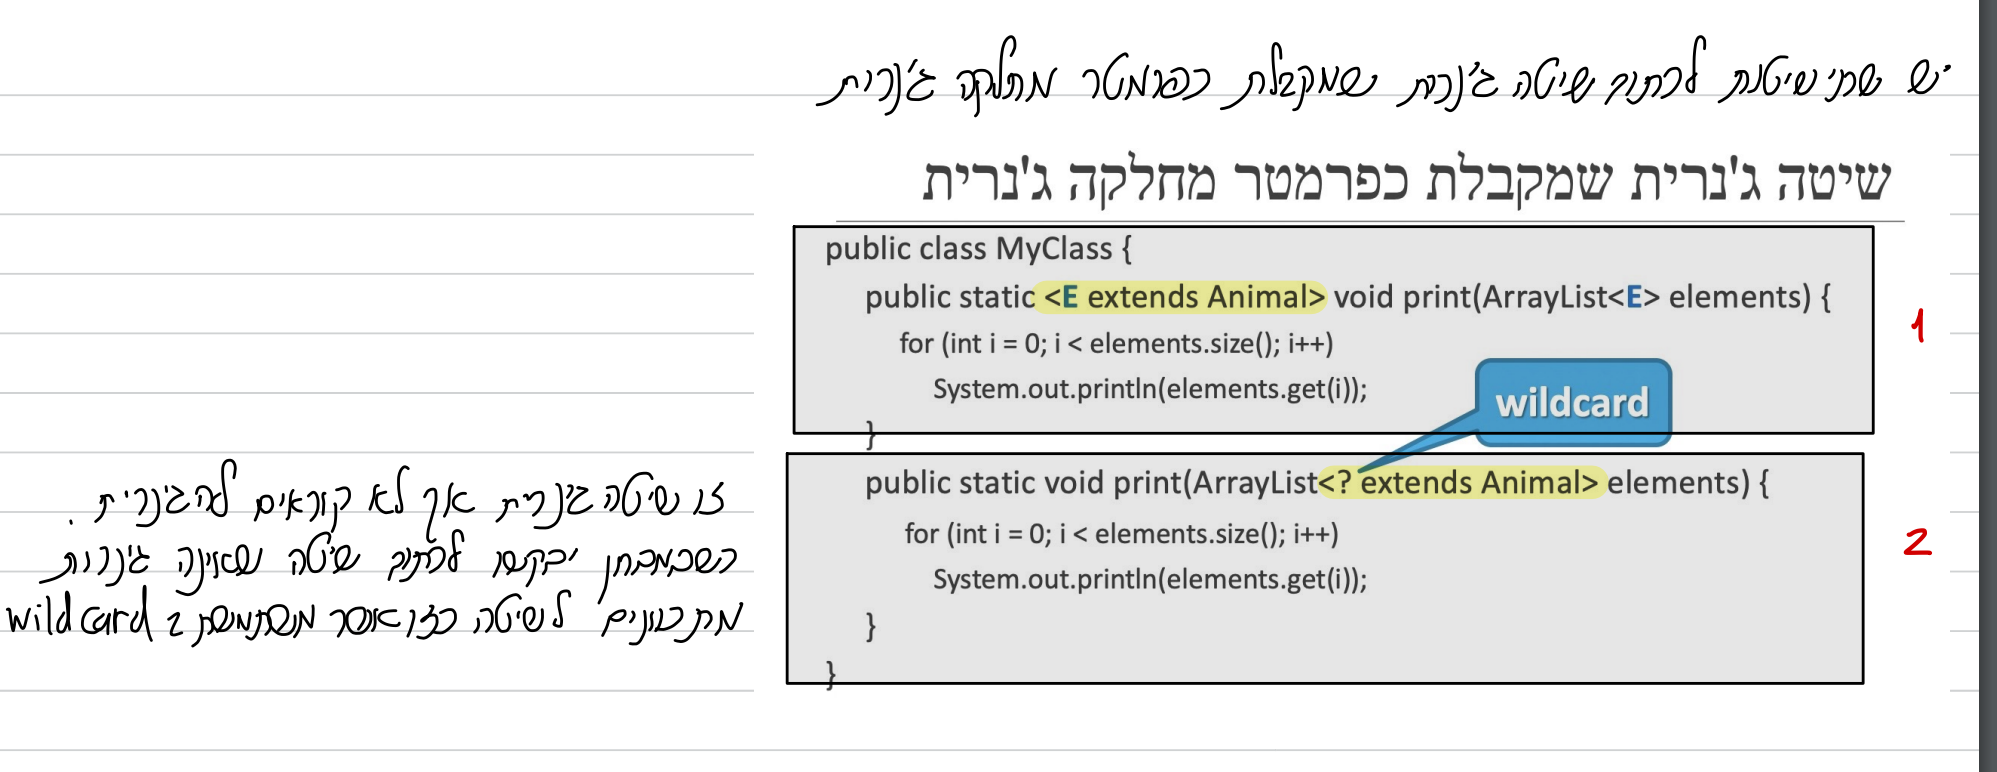 יש שתי שיטות לכתוב שיטה ג'נרית שמקבלת כפרמטר מחלקה ג'נרית
שיטה ג'נרית שמקבלת כפרמטר מחלקה ג'נרית
public class MyClass {
public static <E extends Animal> void print(ArrayList<E> elements) {
1
for (int i = 0; i < elements.size(); i++)
System.out.println(elements.get(i));
wildcard
}
public static void print(ArrayList<? extends Animal> elements) {
for (int i = 0; i < elements.size(); i++)
2
System.out.println(elements.get(i));
}
}
זו שיטה ג'נרית אך לא קוראים לה ג'נרית.
כשבמבחן יבקשו לכתוב שיטה שאינה ג'נרית
מתכוונים לשיטה כזו אשר משתמשת ב wildcard